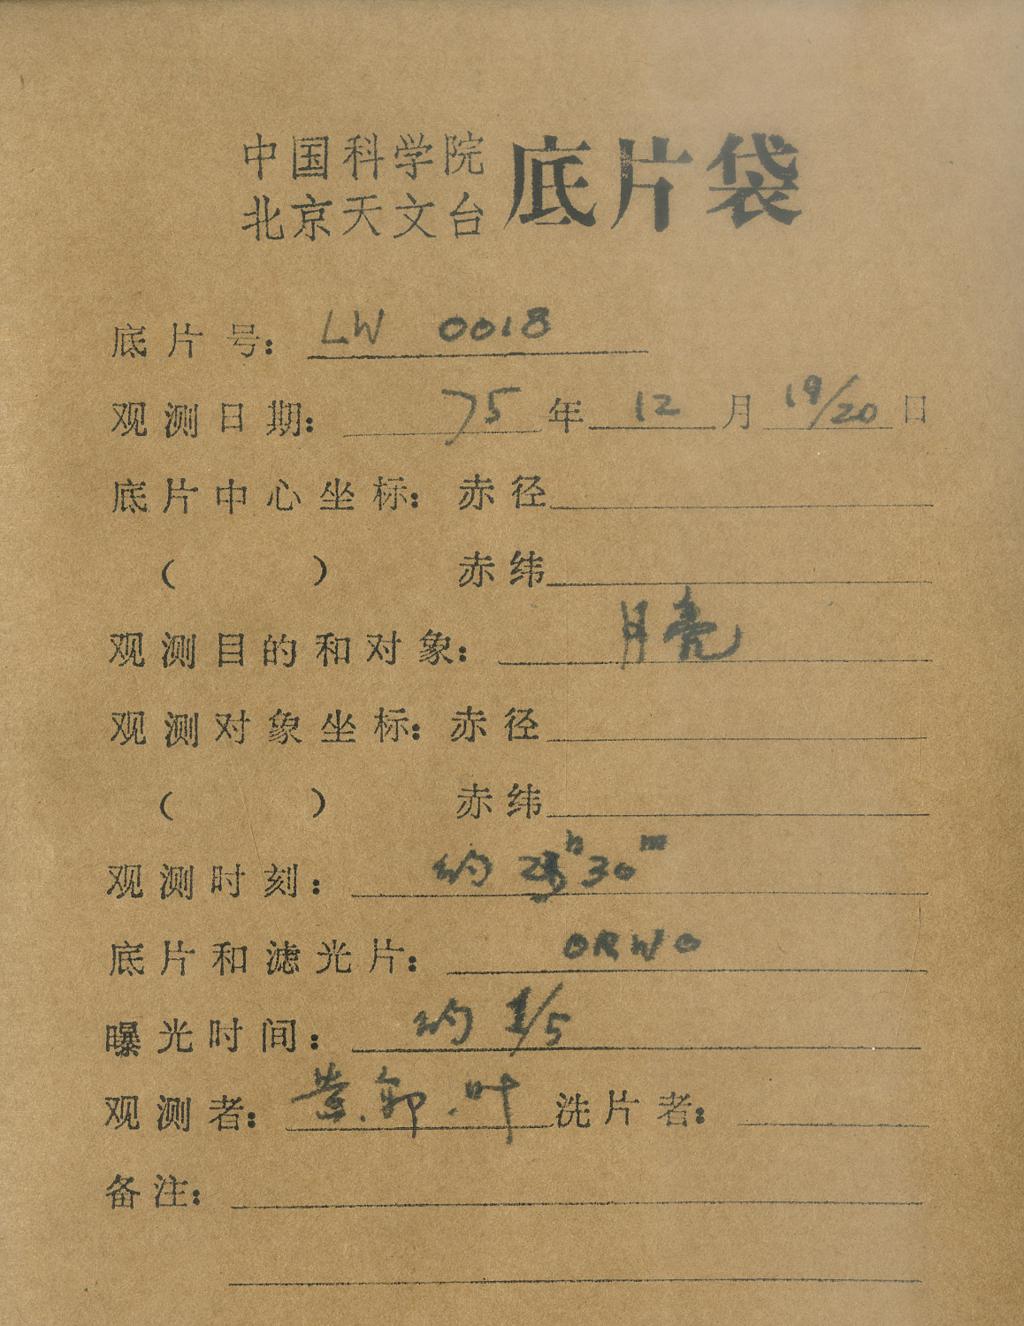 中国科学院
北京天文台 底片袋
底片号: LW 0018
观测日期: 75年12月19/20日
底片中心坐标: 赤径
( ) 赤纬
观测目的和对象: 月亮
观测对象坐标: 赤径
( ) 赤纬
观测时刻: 约 23h30m
底片和滤光片: ORWO
曝光时间: 约 1/5
观测者: 郭.叶 洗片者:
备注: